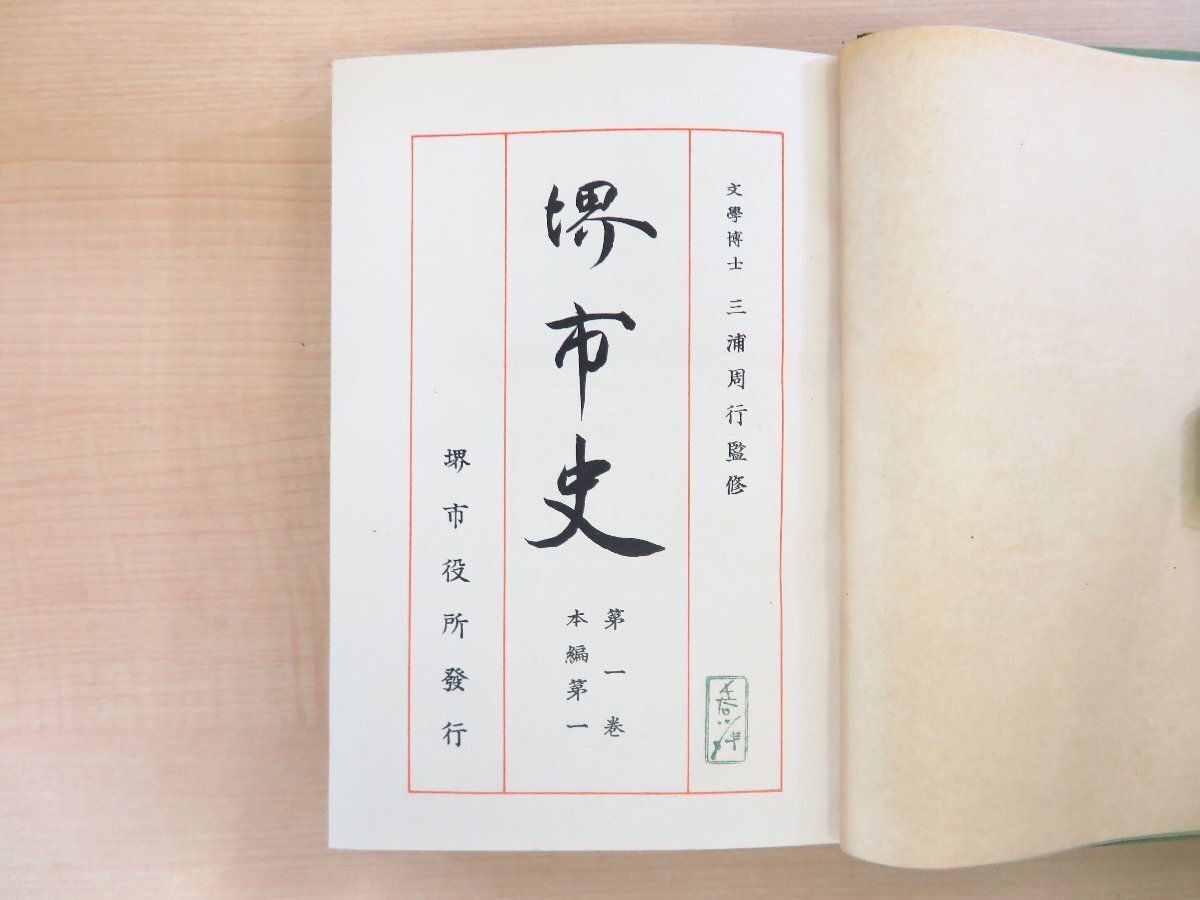 文學博士 三浦周行監修
堺市史
第一巻
本編第一
堺市役所發行